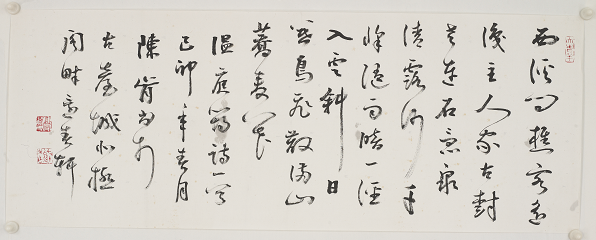 西溪问樵客遥
识主人家古树
老连石急泉
清露沙千
峰随雨暗一径
入云斜日
鸟飞散满山
荞麦花
温庭筠诗一首
己卯年春月
陈
古台城北极
阁畔春轩